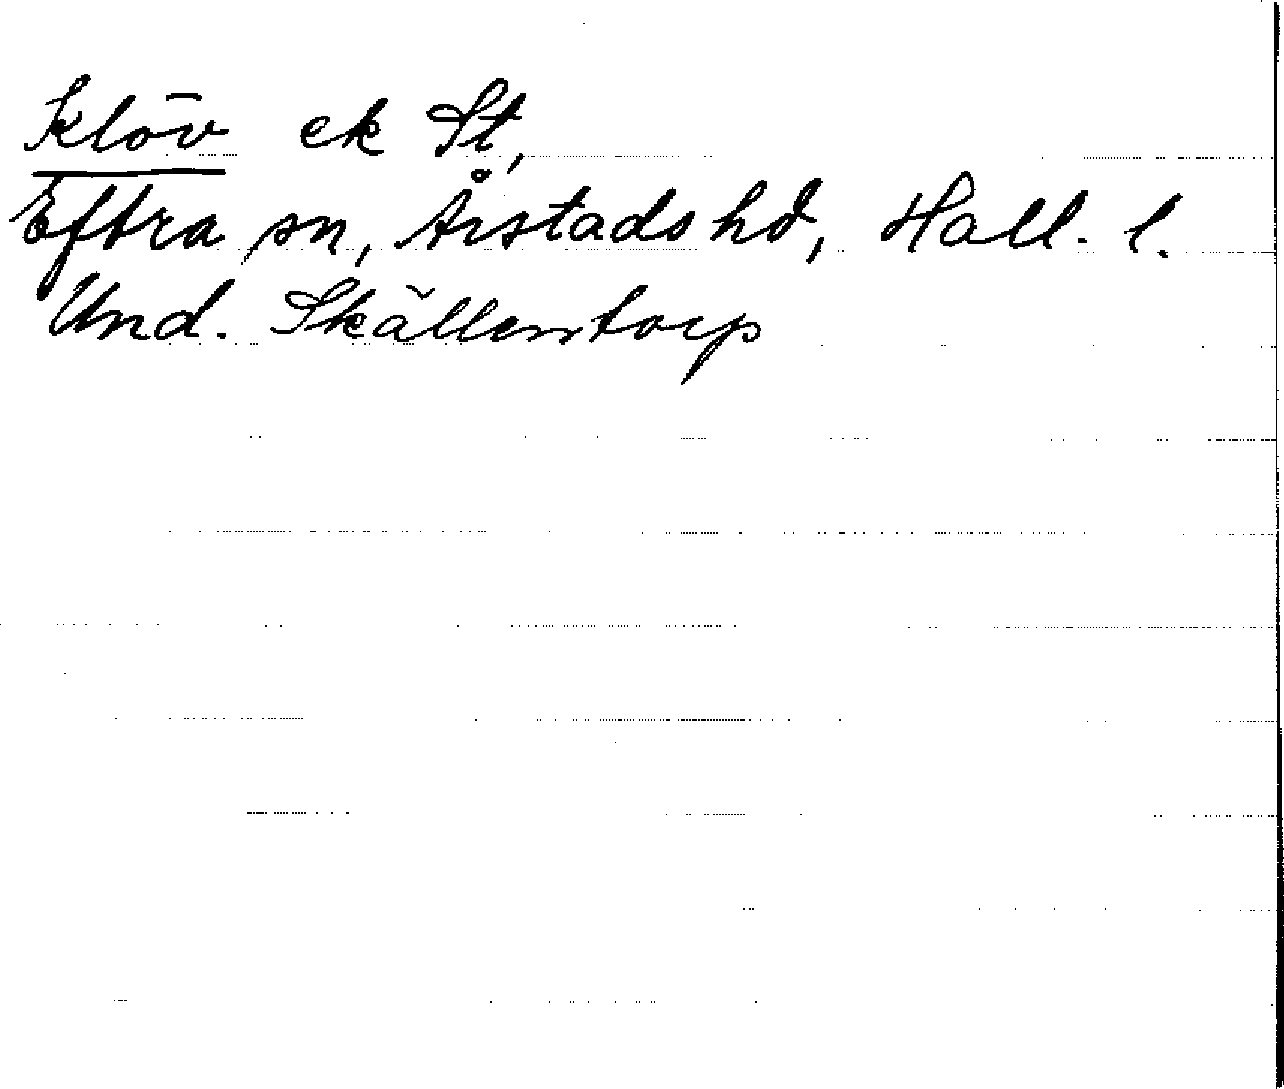 Klöv ek St,
Eftra sn, Årstads hd, Hall. l.
Und. Skällentorp